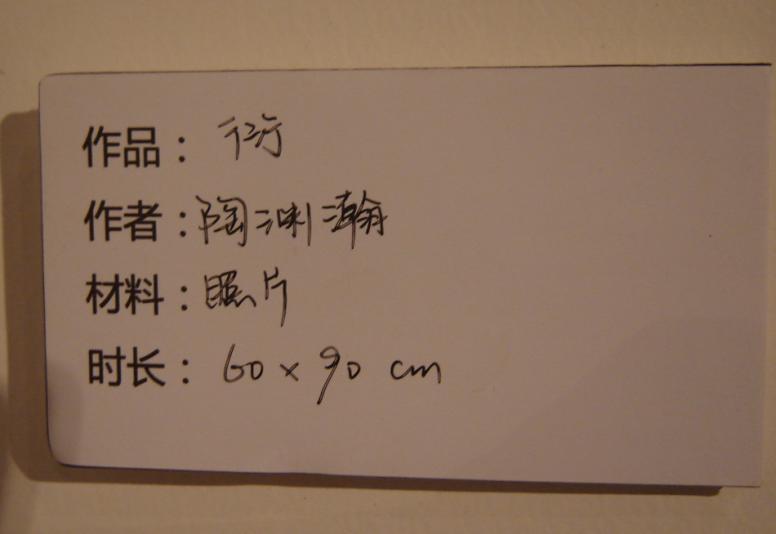 作品：衍
作者：陶渊瀚
材料：照片
时长：60×90 cm